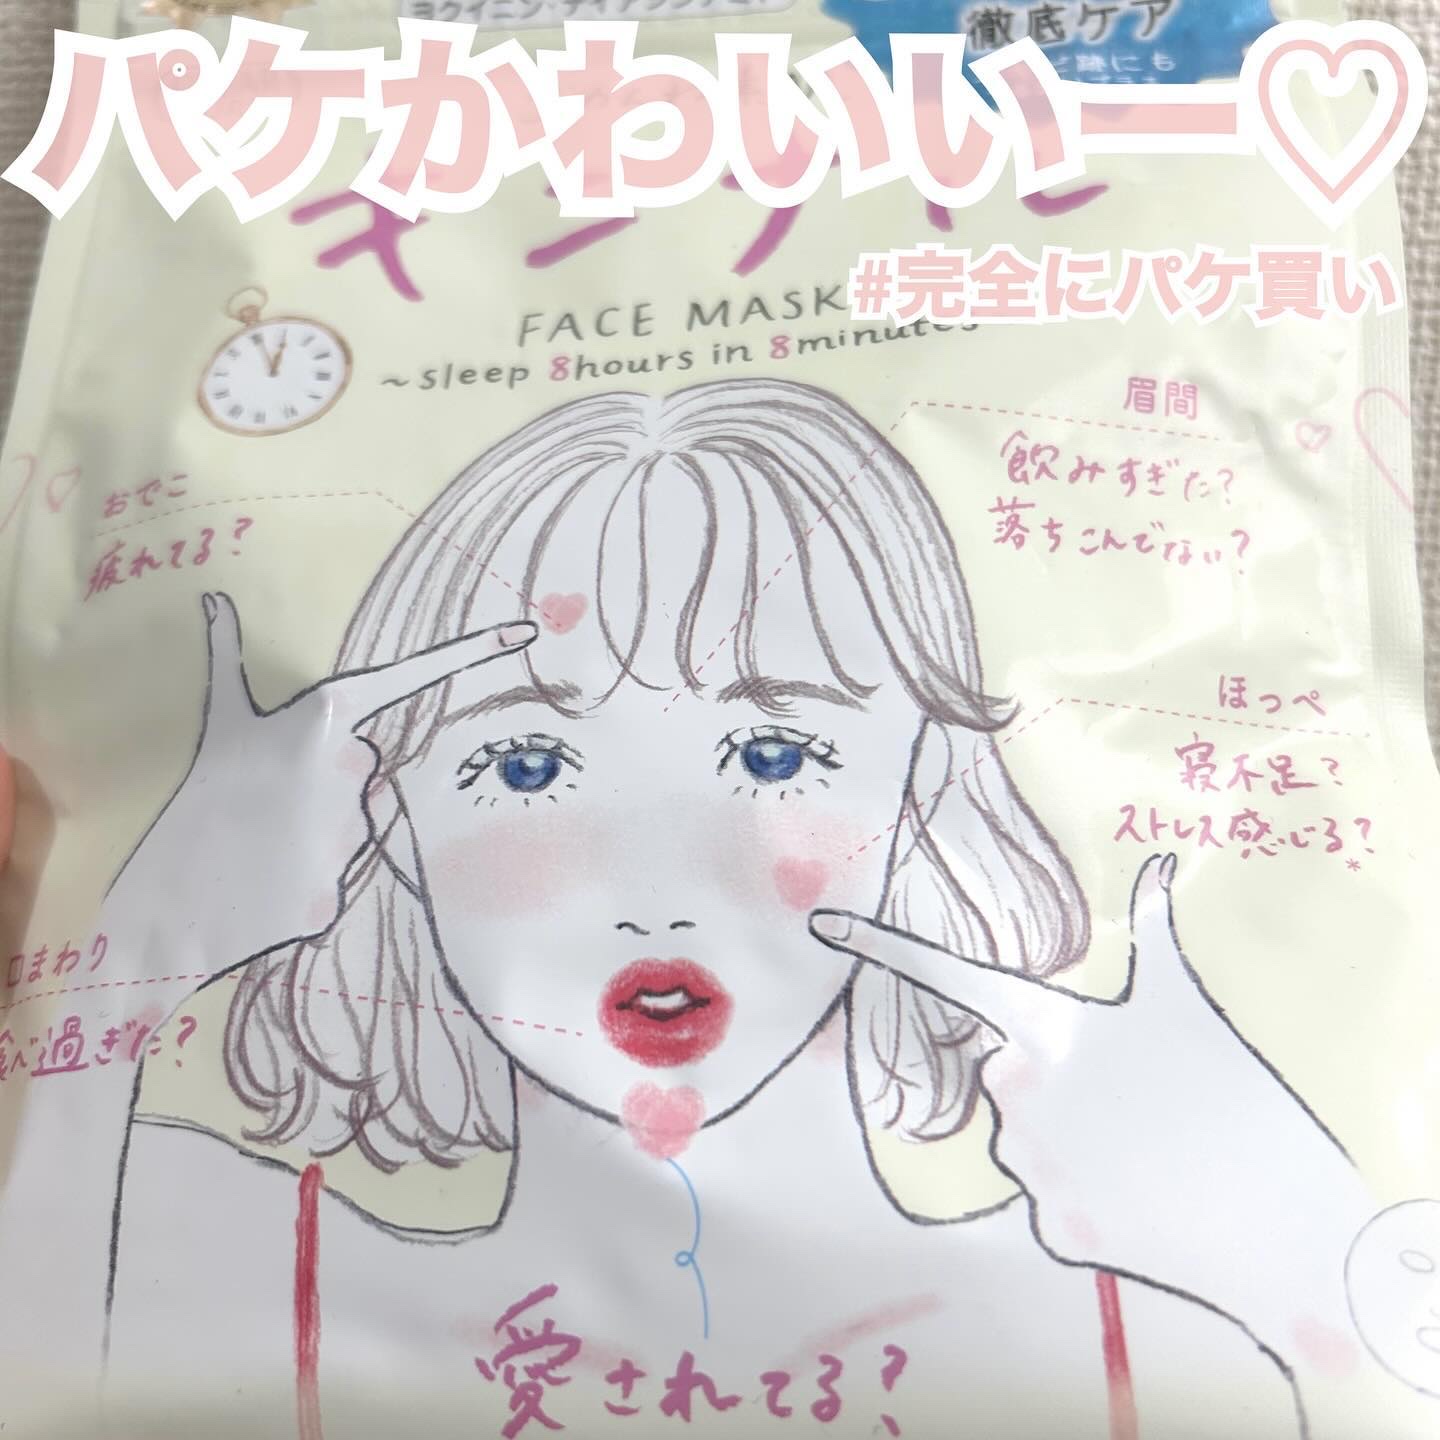 徹底ケア
パケかわいいー♡
#完全にパケ買い
FACE MASK
~sleep 8hours in 8minutes
眉間
飲みすぎた?
落ちこんでない?
おでこ
疲れてる?
ほっぺ
寝不足?
ストレス感じる?*
口まわり
食べ過ぎた?
愛されてる?